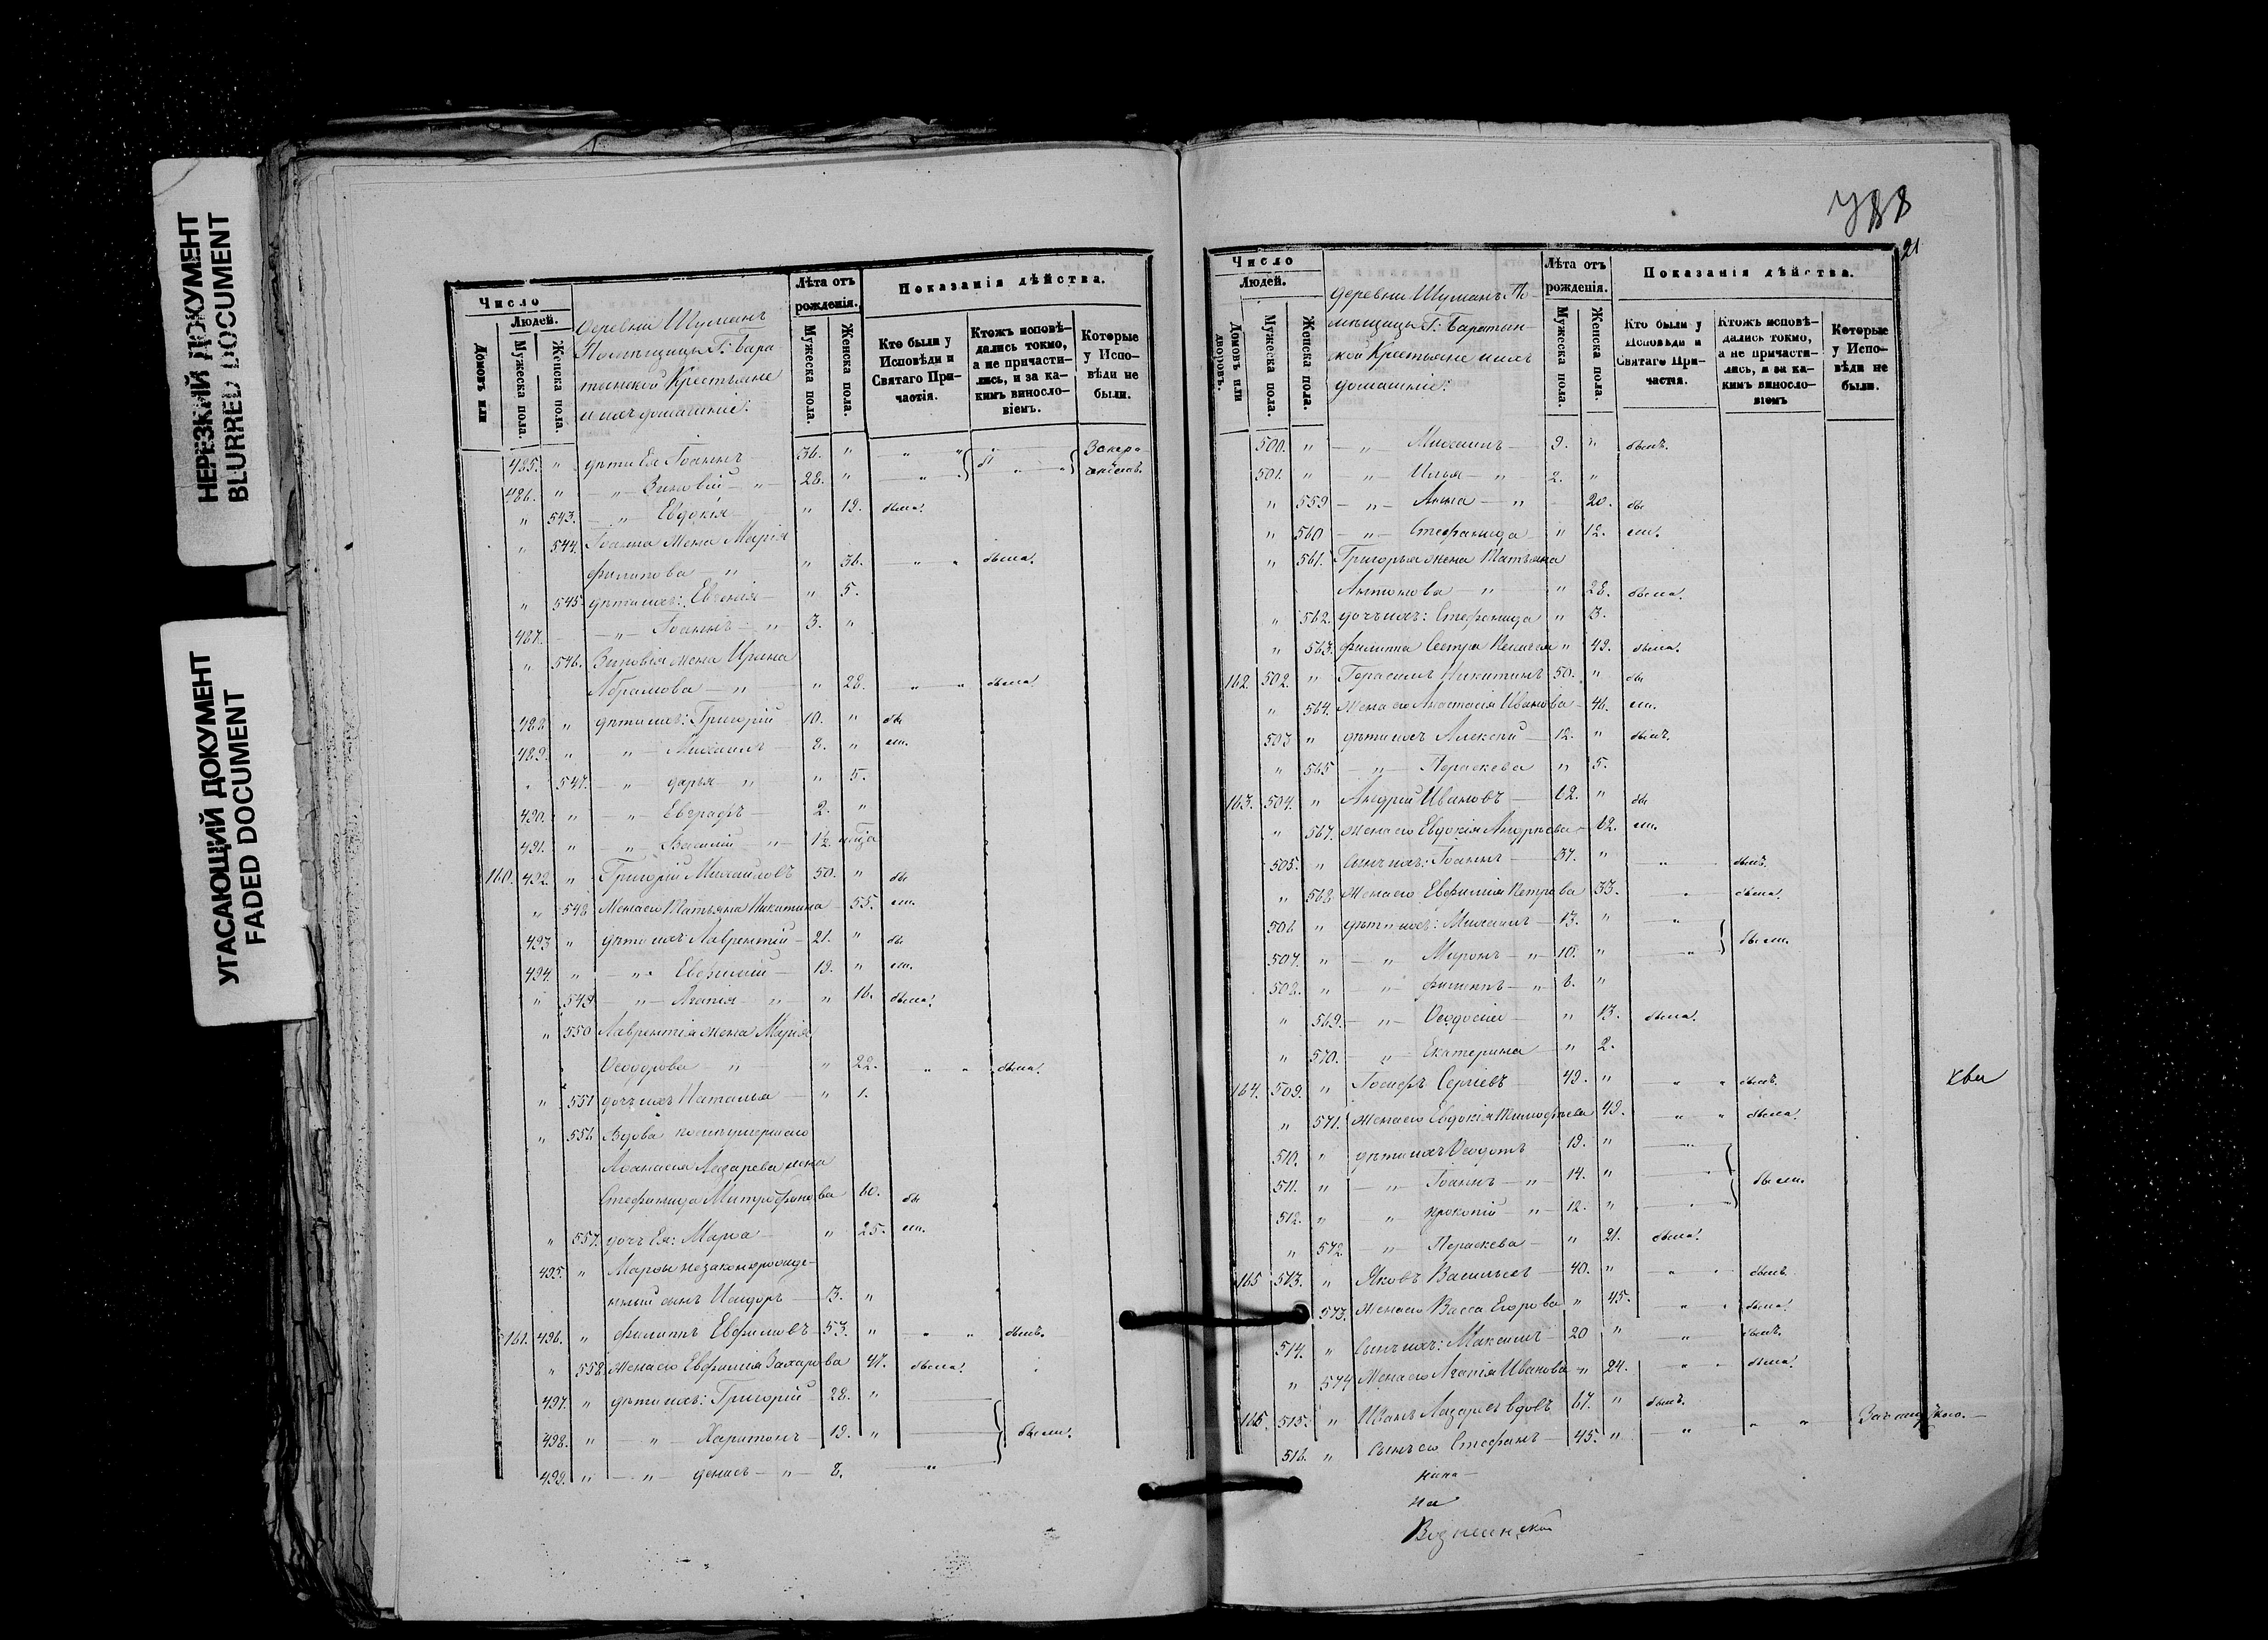 НЕРЕЗКИЙ ДОКУМЕНТ
BLURRED DOCUMENT
УГАСАЮЩИЙ ДОКУМЕНТ
FADED DOCUMENT
Число
Людей.
Домовъ или
Мужеска пола.
Женска пола.
деревни Шуманъ
Помѣщицы Г: Бара
тынской Крестьяне
и ихъ домашніе:
Лѣта отъ
рожденія.
Мужеска пола.
Женска пола.
Показанія дѣйства.
Кто были у
Исповѣди и
Святаго При-
частія.
Ктожъ исповѣ-
дались токмо,
а не причасти-
лись, и за ка-
кимъ винсло-
віемъ.
Которые
у Испо-
вѣди не
были.
485. " дѣти Ея Іоаннъ 36. "
486. " — " — Зиновій — " — 28. "
" 543. — " Евдокія " 19. была.
" 544. Іоанна жена Марія
Филипова — " " 36. " " была.
" 545 дѣти ихъ: Евгенія " 5.
487. — " — Іоаннъ — " 3. "
" 546. Зиновія жена Ирина
Абрамова — " — " 28. " " была.
488 " дѣти ихъ: Григорій 10. " бы
489. " " Михаилъ 8. " ли.
" 547. — " дарья — " " 5.
490. " — " Евграфъ 2. "
491. " — " Василій — " — 1/2
160. 492. " Григорій Михаиловъ 50. " бы
" 548 Жена его Татьяна Никитина 55. ли.
493 " дѣти ихъ Лаврентій 21. " бы
494. " — " — Евфимій 19. " ли.
" 549 — " — Агапія — " " 16. была.
" 550 Лаврентія жена Марія
Ѳеодорова — " " 22. " " была.
" 551 дочь ихъ Наталья " 1.
" 556 Вдова
Аѳанасія Лазарева жена
Стефанида Митрофанова 60. бы
" 557. дочь Ея: Марѳа " 25. ли.
495. " Марѳы незаконорожде-
нный сынъ Исидоръ 13. "
161. 496. " Филиппъ Евфимовъ 53. " " " былъ.
" 558. Жена его Евфимія Захарова 47. была.
497. " дѣти ихъ: Григорій 28. "
498. " — " — Харитонъ 19. " были.
499. " — " — денисъ — " 8. "
21
Число
Людей.
Домовъ или
дворовъ.
Мужеска пола.
Женска пола.
деревни Шуманъ По-
мѣщицы Г: Баратин-
ской Крестьяне и ихъ
домашніе:
Лѣта отъ
рожденія.
Мужеска пола.
Женска пола.
Показанія дѣйства.
Кто были у
Исповѣди и
Святаго При-
частія.
Ктожъ исповѣ-
дались токмо,
а не причасти-
лись, и за ка-
кимъ винсло-
віемъ
Которые
у Испо-
вѣди не
были.
500. " — " Михаилъ 9. " былъ.
501. " — " — Илья — " 2. "
" 559 — " — Анна — " 20. бы
" 560 — " — Стефанида " 12. ли.
" 561. Григорья жена Татьяна
Антонова — " " 28. была.
" 562. дочь ихъ: Стефанида " 3.
" 563. Филиппа Сестра " 49. была.
162. 502. " Герасимъ Никитинъ 50. " бы
" 564. Жена его Анастасія Иванова 46. ли.
503 " дѣти ихъ Алексѣй 12. " былъ.
" 565 — " — Параскева " 5.
163. 504. " Андрій Ивановъ 62. " бы
" 567. Жена его Евдокія Андреева 62. ли.
505. " Сынъ ихъ: Іоаннъ 37. " " былъ.
" 568 Жена его Евфимія Петрова 33. " была.
506 " дѣти ихъ: Михаилъ 13. " "
507. " — " Миронъ — " 10. " " были.
508. " — " Филиппъ — " 6. "
" 569. — " — Ѳеодосія " 13. была.
" 570. — " — Екатерина " 2.
164. 509. " Іосифъ Сергіевъ 49. " " " былъ.
" 571. Жена его Евдокія Тимофеева 49. " " была.
510. " дѣти ихъ Ѳеодотъ 19. " "
511. " — " — Іоаннъ — " 14. " были.
512. " " прокопій — " 12. " "
" 572 — " — Параскева " 21. была.
165 513. " Яковъ Васильевъ 40. " " " былъ
573. Жена его Васса Егорова " 45. " " была.
514. " Сынъ ихъ: Максимъ 20 " " былъ.
" 574 Жена его Агапія Иванова " 24. " " была.
165. 515. " Иванъ Лазаревъ вдовъ 67. " былъ.
516. " Сынъ его Стефанъ 45. " " " "
на